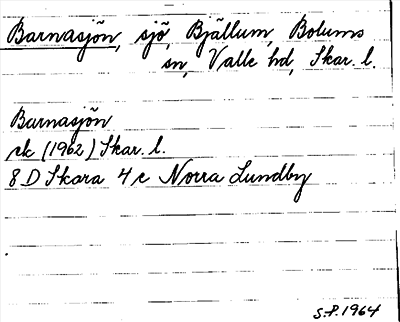 Barnasjön, sjö, Bjällum, Bolums
sn, Valle hd, Skar. l.
Barnasjön
rk (1962) Skar. l.
8 D Skara 4 c Norra Lundby
S.P. 1964